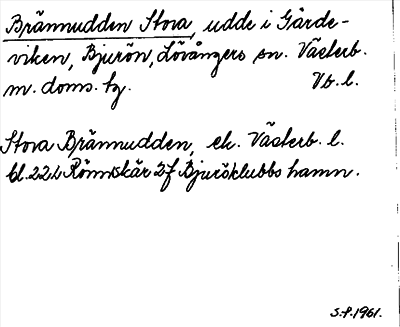 Brännudden Stora, udde i Gärde-
viken, Bjurön, Lövångers sn. Västerb.
m. doms. tg. Vb. l.
Stora Brännudden, ek. Västerb. l.
bl. 22 L Rönnskär 2f Bjuröklubbs hamn.
S.P. 1961.